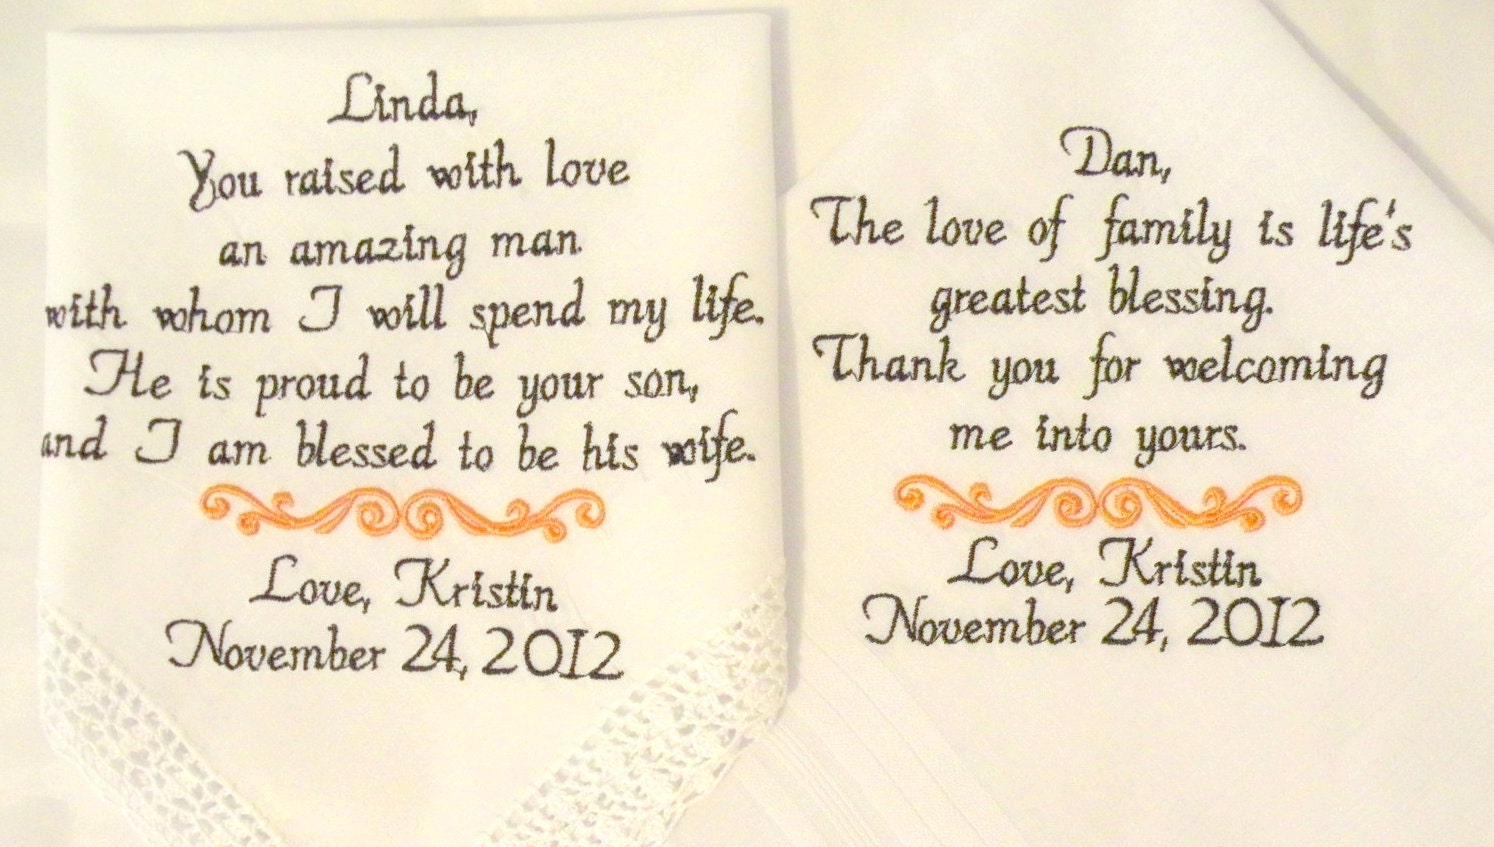 Linda,
You raised with love
an amazing man
with whom I will spend my life.
He is proud to be your son,
and I am blessed to be his wife.
Love, Kristin
November 24, 2012
Dan,
The love of family is life's
greatest blessing.
Thank you for welcoming
me into yours.
Love, Kristin
November 24, 2012